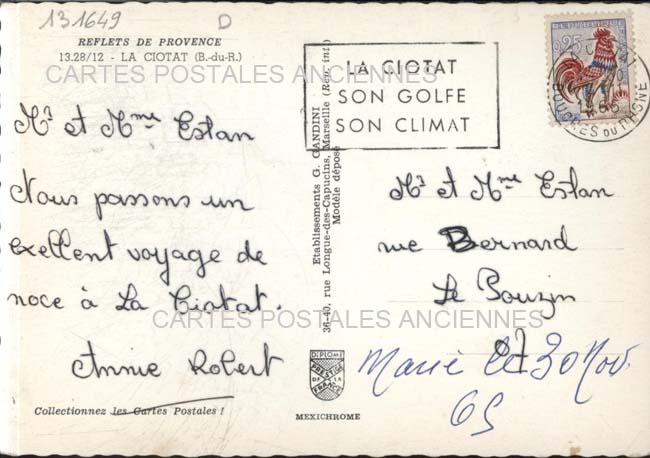 131649
D
REFLETS DE PROVENCE
13.28/12 - LA CIOTAT (B.-du-R.)
CARTES POSTALES ANCIENNES
Mr et Mme Estan
Nous passons un
exellent voyage de
noce à La Ciotat.
Annie Robert
Collectionnez les Cartes Postales !
Etablissements G. GANDINI
36-40, rue Longue-des-Capucins, Marseille (Rep. int.)
Modèle déposé
DIPLOME
PRESTIGE
DE LA
FRANCE
MEXICHROME
LA CIOTAT
SON GOLFE
SON CLIMAT
0,25
BOUCHES DU RHONE
Mr et Mme Estan
rue Bernard
Le Pouzin
07
CARTES POSTALES ANCIENNES
Marié le 30 Nov.
65